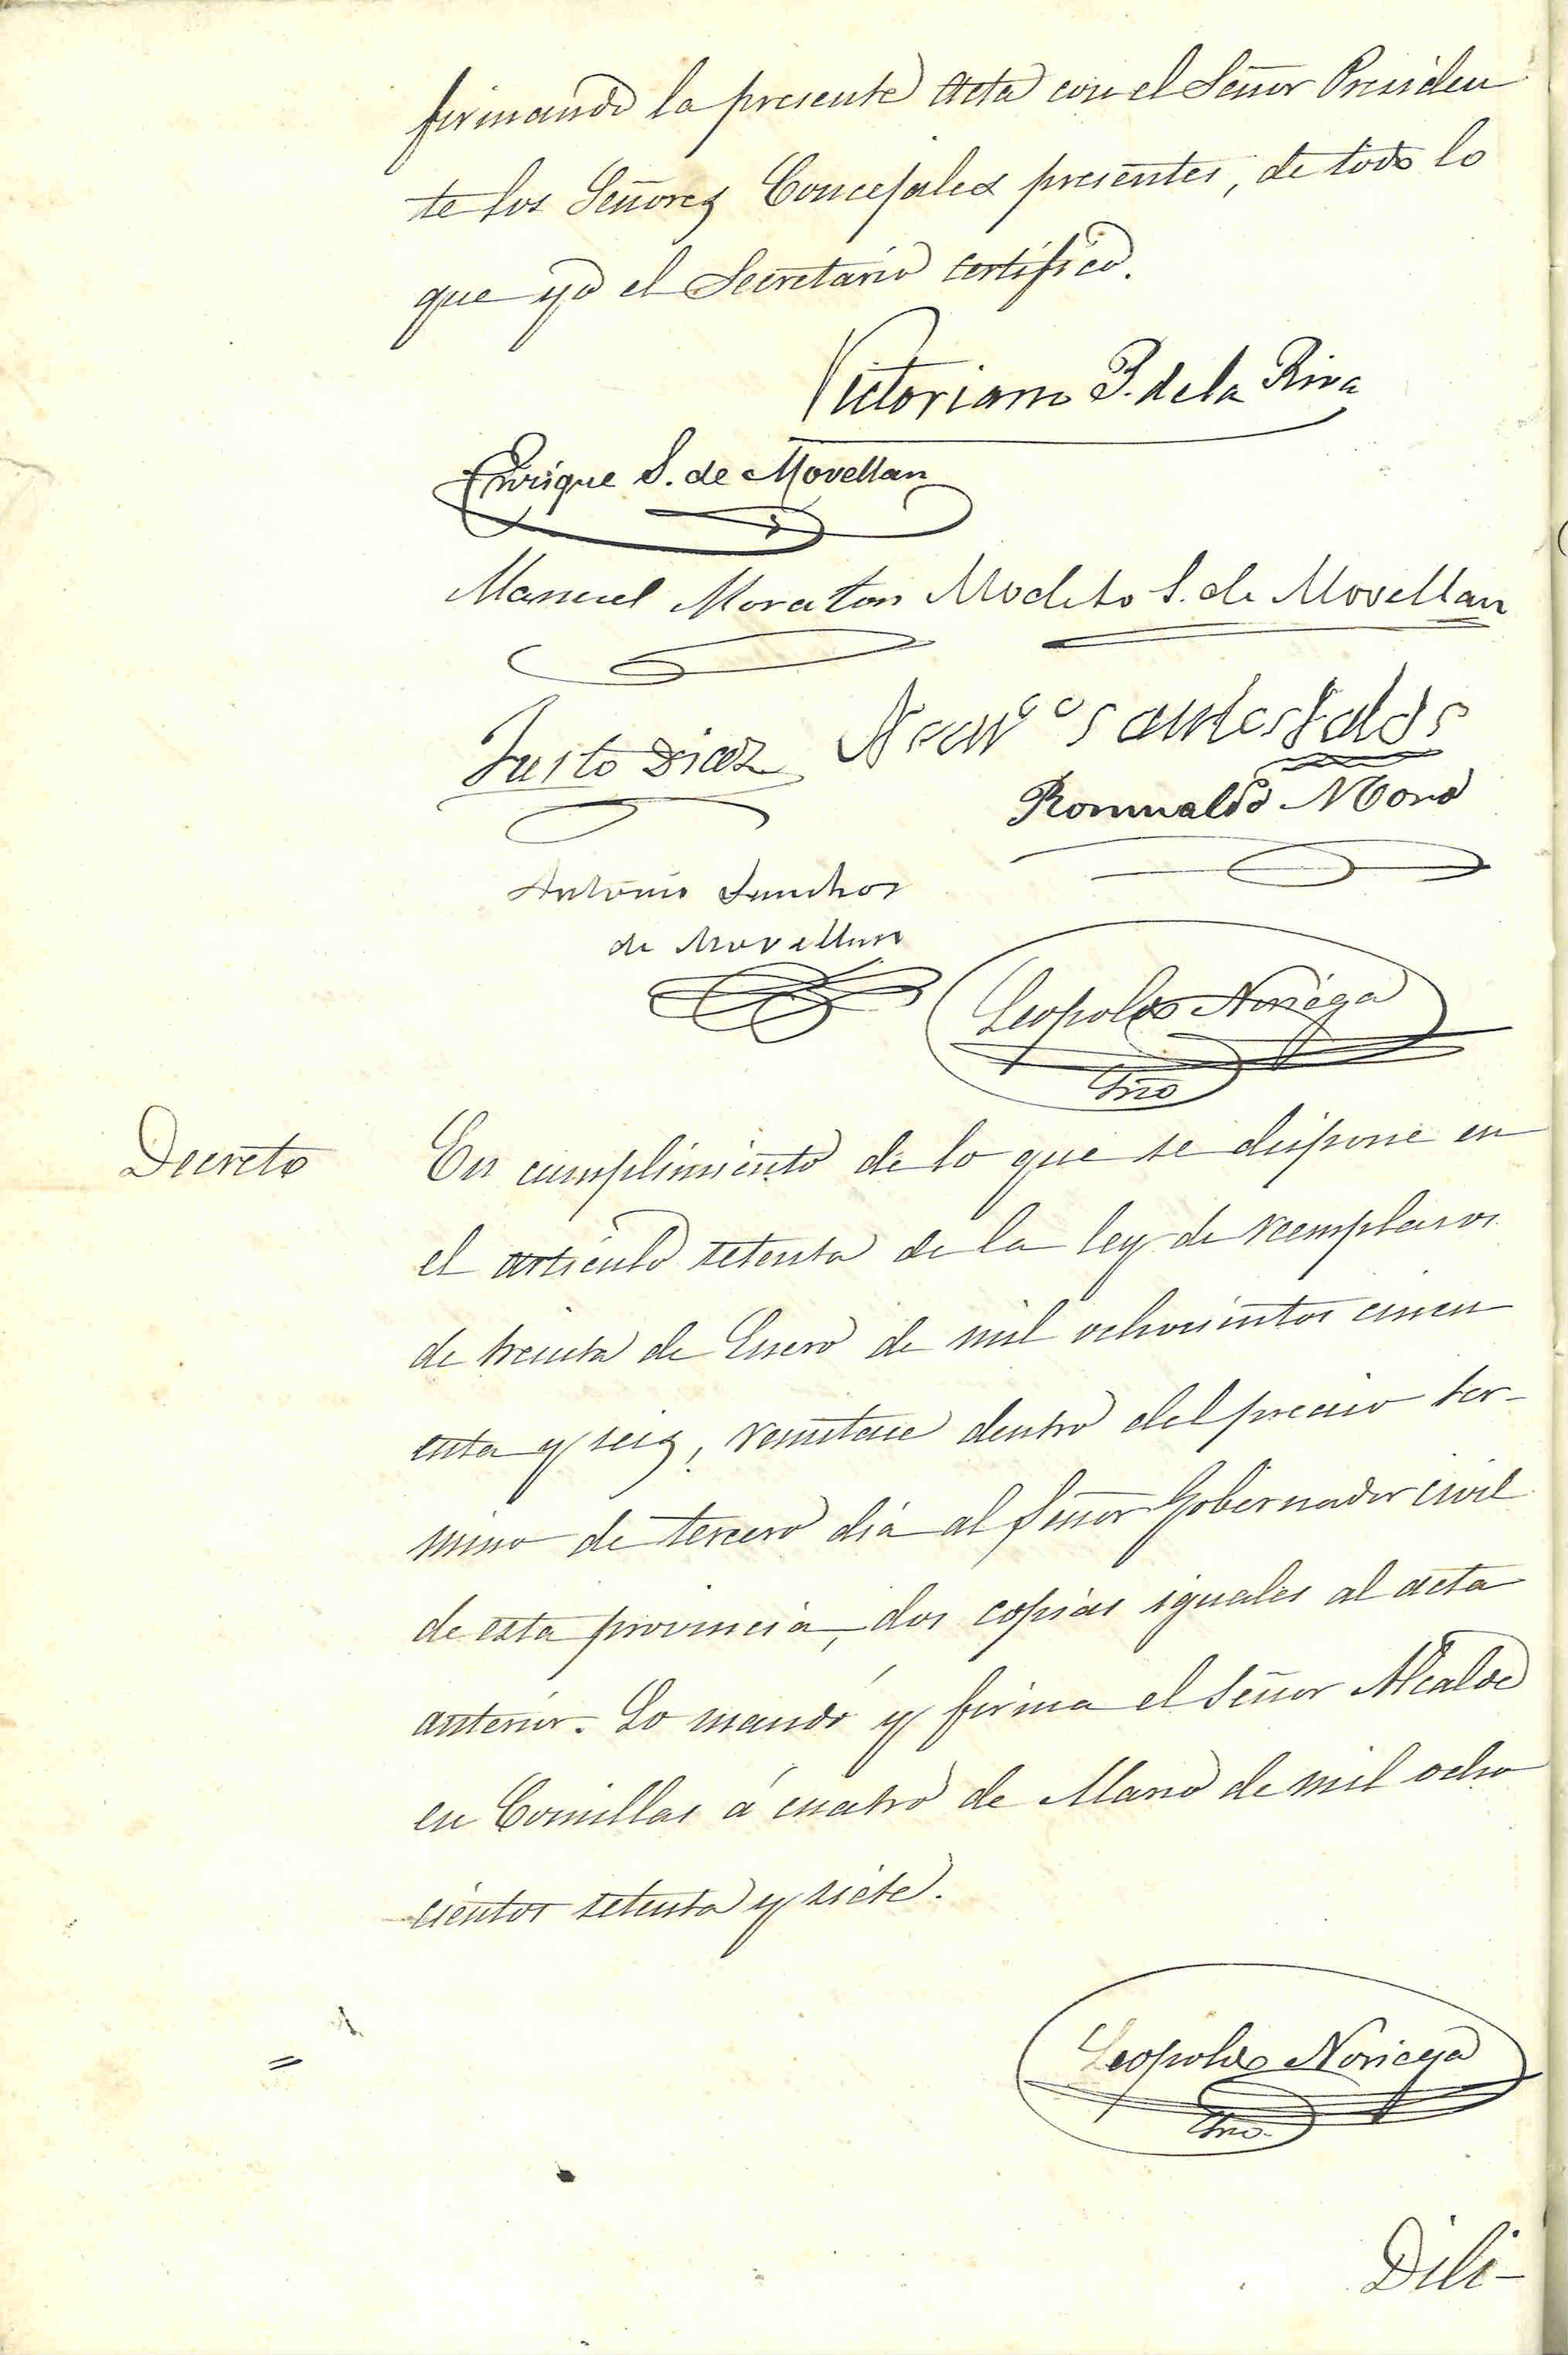 firmando la presente Acta con el Señor Presiden
te los Señores Concejales presentes, de todo lo
que yo el Secretario certifico.
Victoriano P. de la Riva
Enrique S. de Movellan
Manuel Moraton Modesto S. de Movellan
Justo Diaz
Romualdo Moro
Antonio Sanchez
de Movellan
Leopoldo Noriega
Srio
Decreto
En cumplimiento de lo que se dispone en
el artículo setenta de la ley de reemplasos
de treinta de Enero de mil ochocientos cincu
enta y seis, remitase dentro del preciso ter-
mino de tercero dia al Señor Gobernador civil
de esta provincia, dos copias iguales al acta
anterior. Lo mandó y firma el Señor Alcalde
en Comillas á cuatro de Marso de mil ocho
cientos setenta y siete.
Leopoldo Noriega
Srio.
Dili-